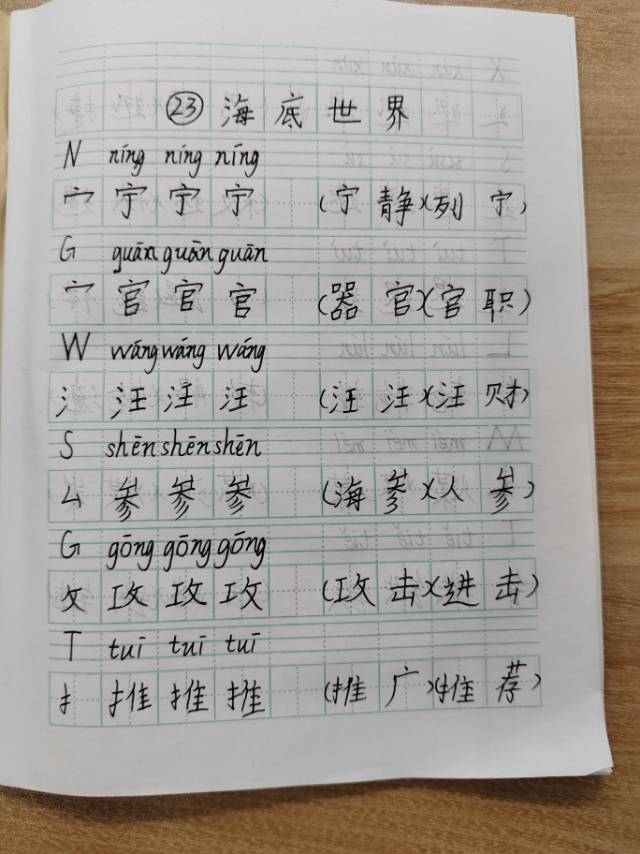 ㉓ 海底世界
N níng níng níng
宀 宁 宁 宁 (宁静)(列宁)
G guān guān guān
宀 官 官 官 (器官)(官职)
W wāng wáng wáng
氵 汪 汪 汪 (汪汪)(汪财)
S shēn shēn shēn
厶 参 参 参 (海参)(人参)
G gōng gōng gōng
攵 攻 攻 攻 (攻击)(进击)
T tuī tuī tuī
扌 推 推 推 (推广)(推荐)